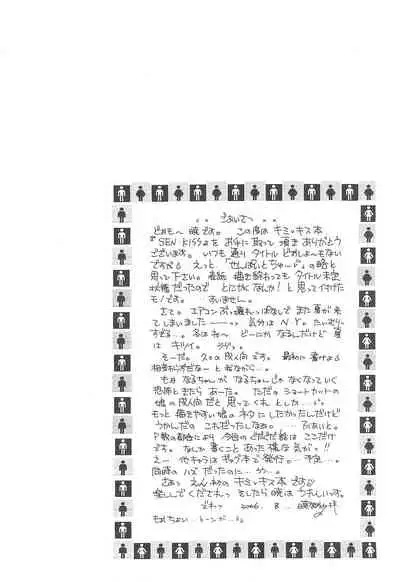 ごあいさつ
どおも〜 暁です。 この度は キミキス本
『SEN KISS』を お手に取って 頂き ありがとう
ございます。 いつも通り タイトル どおしよ〜もない
ですが えっと 「せんぱいとちゅ〜♡」の略と
思って下さい。 表紙 描き終わっても タイトル 未定
状態だったので とにかくなんか！と思って付けた
モノです。 すいません。
さて。エアコン ぶっ壊れっぱなしで また夏が来
てしまいました 気分は N.Y.
するぜ… 冬はね〜 どーにか なるんだけど 夏
は キツイ。
そーだ。 久々の 成人向 です。 最初に 書けよ
なるちゃんが なるちゃんじゃ なくなっていく
恐怖ときたら あーた。 ただの ショートカットの
娘の 成人向だと 思ってくれ としたか…
もっと 描きやすい娘の ネタに したかったんだけど
うかんだの これだったしなぁ。 …ふぁいと。
P数の都合により 今回の ぐだぐだ話は ここだけ
です。 なんか書くこと あった様な気がっ!!
え〜 他キャラは ギャグ本で 発行。 予定…。
同時の ハズ だったのに…
さぁっ えんりょの キミキス本 です
楽しんで くだされっ としたら 暁は うれしいっす。
でわっ 2006. 8.
トーンが…